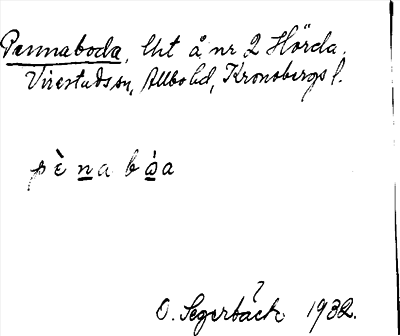 Pennaboda, lht å nr 2 Hörda.
Virestads sn, Allbo hd, Kronobergs l.
pènabòa
O. Segerbäck 1932.